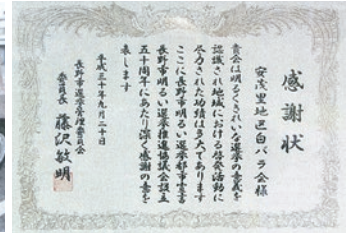 感謝状
安茂里地区白バラ会様
貴会は明るくきれいな選挙の意義を
認識され地域における啓発活動に
尽力された功績は多大であります
ここに長野市明るい選挙都市宣言
長野市明るい選挙推進協議会設立
五十周年にあたり深く感謝の意を
表します
平成三十年九月二十日
長野市選挙管理委員会
委員長 藤沢敏明